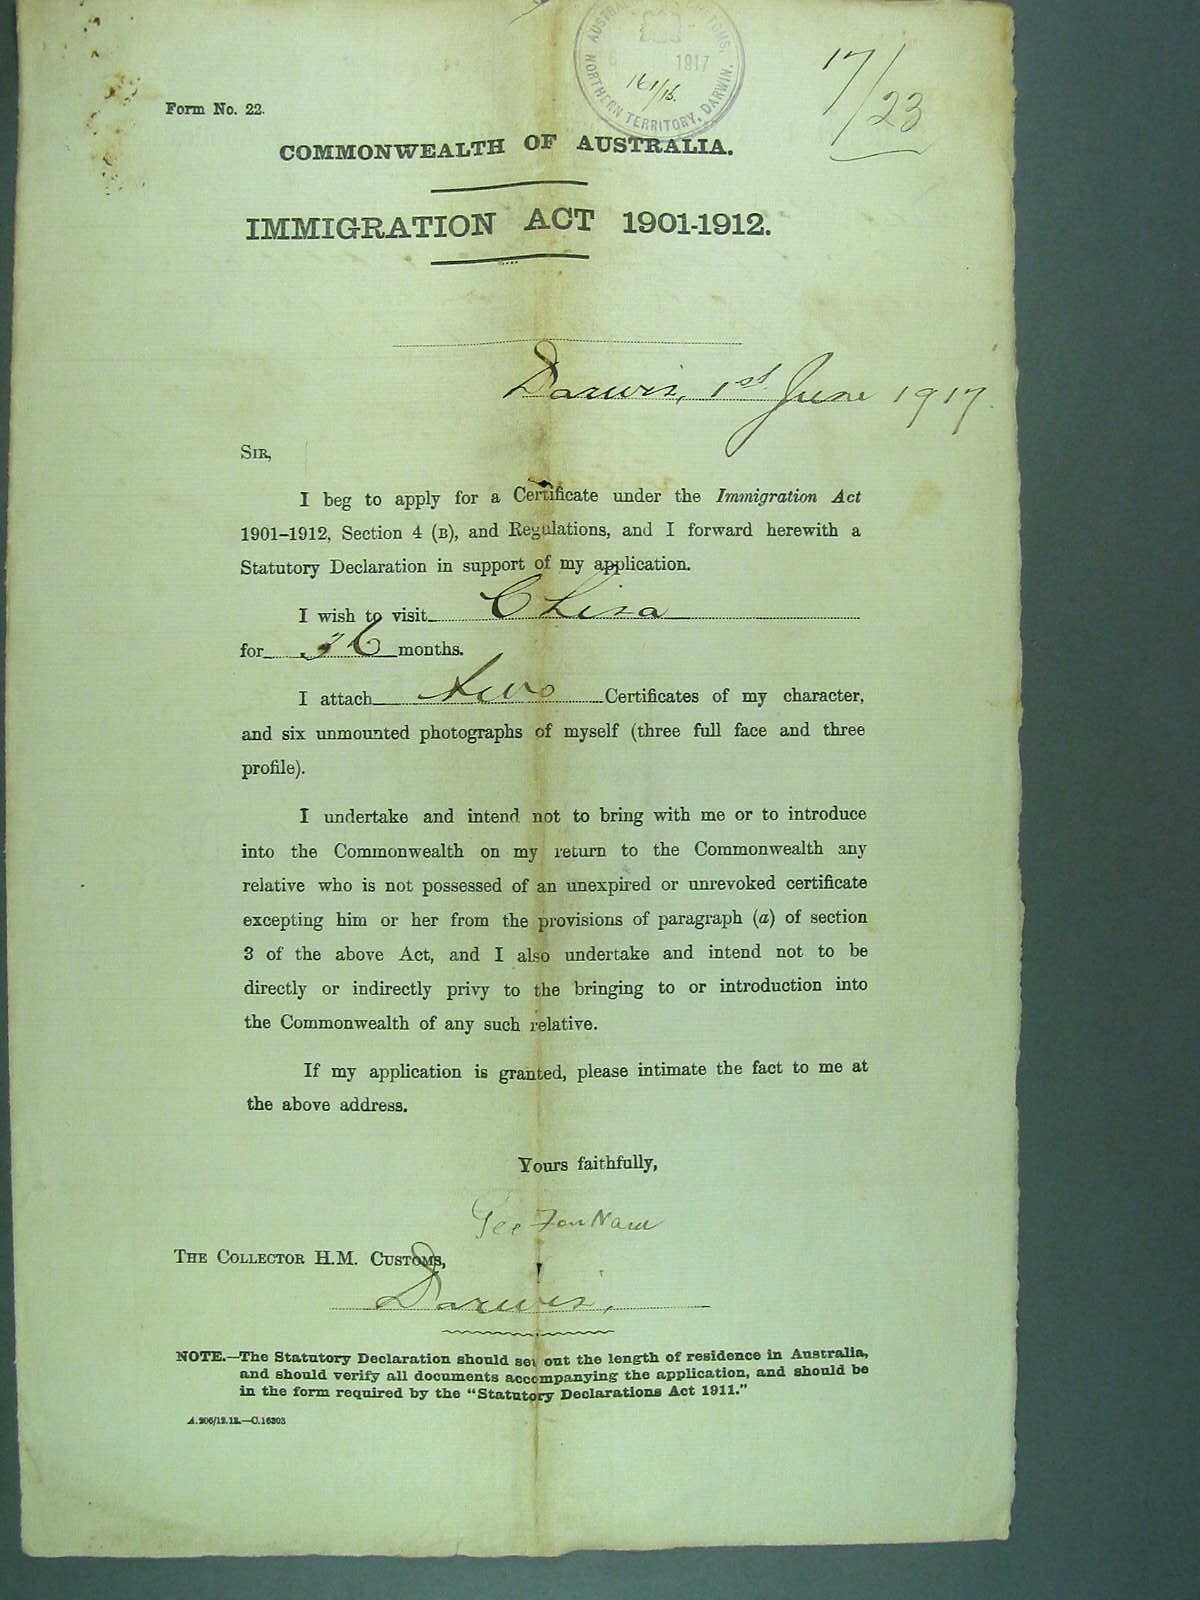 AUSTRALIAN CUSTOMS,
1917
NORTHERN TERRITORY, DARWIN.
17/23
Form No. 22.
COMMONWEALTH OF AUSTRALIA.
IMMIGRATION ACT 1901-1912.
Darwin, 1st June 1917.
SIR,
I beg to apply for a Certificate under the Immigration Act
1901–1912, Section 4 (B), and Regulations, and I forward herewith a
Statutory Declaration in support of my application.
I wish to visit China
for 36 months.
I attach two Certificates of my character,
and six unmounted photographs of myself (three full face and three
profile).
I undertake and intend not to bring with me or to introduce
into the Commonwealth on my return to the Commonwealth any
relative who is not possessed of an unexpired or unrevoked certificate
excepting him or her from the provisions of paragraph (a) of section
3 of the above Act, and I also undertake and intend not to be
directly or indirectly privy to the bringing to or introduction into
the Commonwealth of any such relative.
If my application is granted, please intimate the fact to me at
the above address.
Yours faithfully,
Yee
THE COLLECTOR H.M. CUSTOMS,
Darwin.
NOTE.—The Statutory Declaration should set out the length of residence in Australia,
and should verify all documents accompanying the application, and should be
in the form required by the "Statutory Declarations Act 1911."
A.206/12.12.—C.16303